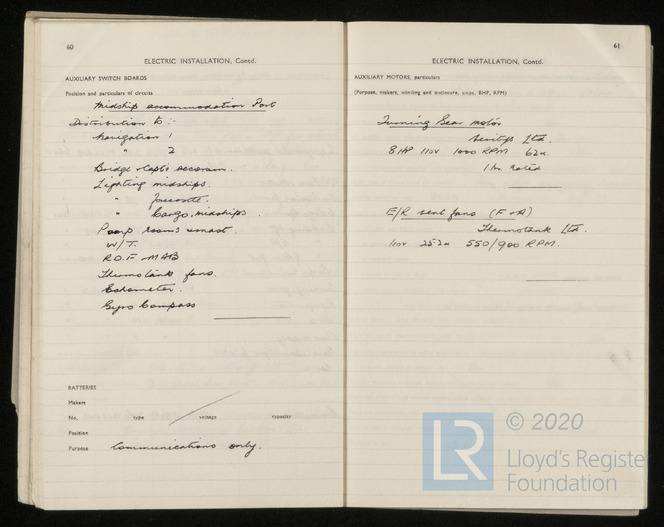 60
ELECTRIC INSTALLATION, Contd.
AUXILIARY SWITCH BOARDS
Position and particulars of circuits
Midship accommodation Port
Distribution to :-
Navigation 1
" 2
Bridge & Capt's accom.
Lighting midships.
" foecastle.
" Cargo, midships.
Pump rooms & mast.
W/T.
R.D.F.
Thermotank fans.
Echometer.
Gyro Compass
BATTERIES
Makers
No. type voltage capacity
Position
Purpose Communications only.
61
ELECTRIC INSTALLATION, Contd.
AUXILIARY MOTORS, particulars
(Purpose, makers, winding and enclosure, amps, BHP, RPM)
Turning Gear motor
Ltd.
8 HP 110v 1000 RPM 62a.
1 hr. rated
E/R vent fans (F & A)
Thermotank Ltd.
110v 25.2a 550/900 RPM.
© 2020
LR
Lloyd's Register
Foundation